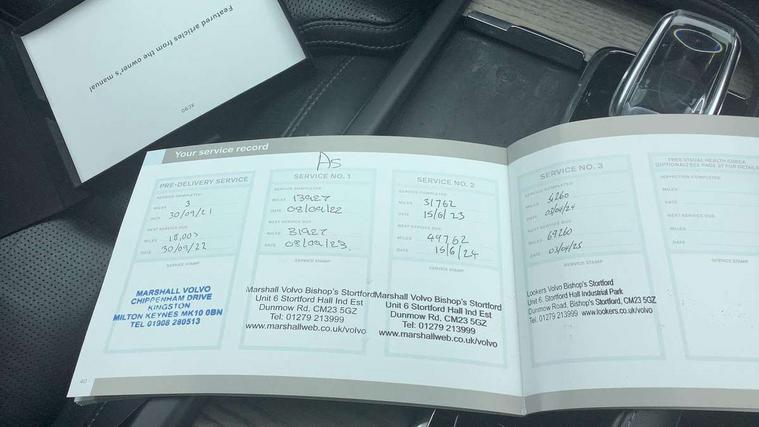 Featured articles from the owner's manual
XC90
Your service record
As
PRE-DELIVERY SERVICE
SERVICE COMPLETED
MILES 3
DATE 30/09/21
NEXT SERVICE DUE
MILES 18,000
DATE 30/09/22
SERVICE STAMP
MARSHALL VOLVO
CHIPPENHAM DRIVE
KINGSTON
MILTON KEYNES MK10 0BN
TEL 01908 280513
SERVICE NO. 1
SERVICE COMPLETED
MILES 13927
DATE
NEXT SERVICE DUE
MILES 31927
DATE
SERVICE STAMP
Marshall Volvo Bishop's Stortford
Unit 6 Stortford Hall Ind Est
Dunmow Rd, CM23 5GZ
Tel: 01279 213999
www.marshallweb.co.uk/volvo
SERVICE NO. 2
SERVICE COMPLETED
MILES 31762
DATE 15/6/23
NEXT SERVICE DUE
MILES 49762
DATE 15/6/24
SERVICE STAMP
Marshall Volvo Bishop's Stortford
Unit 6 Stortford Hall Ind Est
Dunmow Rd, CM23 5GZ
Tel: 01279 213999
www.marshallweb.co.uk/volvo
SERVICE NO. 3
SERVICE COMPLETED
MILES
DATE
NEXT SERVICE DUE
MILES 69260
DATE
SERVICE STAMP
Lookers Volvo Bishop's Stortford
Unit 6, Stortford Hall Industrial Park
Dunmow Road, Bishop's Stortford, CM23 5GZ
Tel: 01279 213999 www.lookers.co.uk/volvo
FREE VISUAL HEALTH CHECK
INSPECTION COMPLETED
MILES
DATE
NEXT SERVICE DUE
MILES
DATE
SERVICE STAMP
40